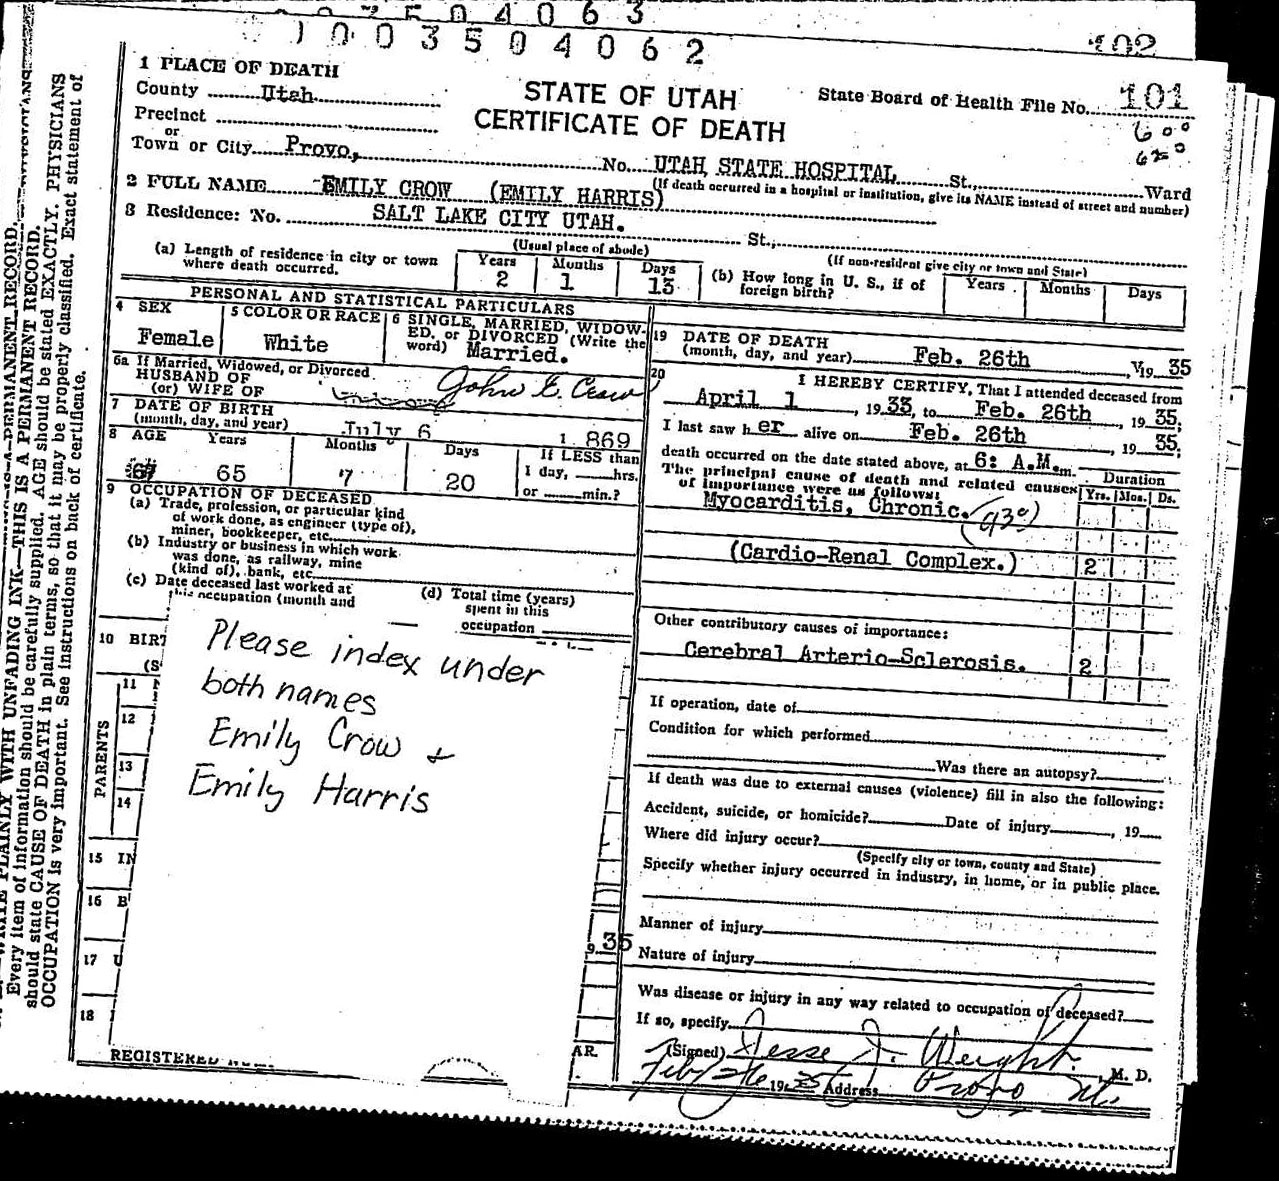 1003504062
102
1 PLACE OF DEATH
County Utah
Precinct
or
Town or City Provo,
STATE OF UTAH
CERTIFICATE OF DEATH
State Board of Health File No. 101
No. UTAH STATE HOSPITAL St., Ward
(If death occurred in a hospital or institution, give its NAME instead of street and number)
2 FULL NAME EMILY CROW (EMILY HARRIS)
3 Residence: No. SALT LAKE CITY UTAH. St.,
(Usual place of abode)
(If non-resident give city or town and State)
(a) Length of residence in city or town where death occurred.
Years 2 Months 1 Days 13
(b) How long in U. S., if of foreign birth? Years Months Days
PERSONAL AND STATISTICAL PARTICULARS
4 SEX
Female
5 COLOR OR RACE
White
6 SINGLE, MARRIED, WIDOW-
ED, or DIVORCED (Write the
word) Married.
6a If Married, Widowed, or Divorced
HUSBAND OF
(or) WIFE OF John E. Crow
7 DATE OF BIRTH
(month, day, and year) July 6 1869
8 AGE Years Months Days If LESS than
65 7 20 1 day, hrs.
or min.?
9 OCCUPATION OF DECEASED
(a) Trade, profession, or particular kind
of work done, as engineer (type of),
miner, bookkeeper, etc.
(b) Industry or business in which work
was done, as railway, mine
(kind of), bank, etc.
(c) Date deceased last worked at
this occupation (month and
(d) Total time (years)
spent in this
occupation
10 BIRT
(S
PARENTS
11
12
13
14
15 IN
16 B
17 U
18
REGISTERED
Please index under
both names
Emily Crow +
Emily Harris
35
AR.
19 DATE OF DEATH
(month, day, and year) Feb. 26th, 19 35
20 I HEREBY CERTIFY, That I attended deceased from
April 1, 19 33, to Feb. 26th, 19 35;
I last saw her alive on Feb. 26th, 19 35;
death occurred on the date stated above, at 6: A.M. m.
The principal cause of death and related causes
of importance were as follows:
Duration
Yrs. Mos. Ds.
Myocarditis, Chronic. (93c)
(Cardio-Renal Complex.) 2
Other contributory causes of importance:
Cerebral Arterio-Sclerosis. 2
If operation, date of
Condition for which performed
Was there an autopsy?
If death was due to external causes (violence) fill in also the following:
Accident, suicide, or homicide? Date of injury, 19
Where did injury occur?
(Specify city or town, county and State)
Specify whether injury occurred in industry, in home, or in public place.
Manner of injury
Nature of injury
Was disease or injury in any way related to occupation of deceased?
If so, specify
(Signed) Jesse J. Weight, M. D.
Feb/26 1935 Address Provo Ut.
WRITE PLAINLY WITH UNFADING INK—THIS IS A PERMANENT RECORD.
Every item of information should be carefully supplied. AGE should be stated EXACTLY. PHYSICIANS
should state CAUSE OF DEATH in plain terms, so that it may be properly classified. Exact statement of
OCCUPATION is very important. See instructions on back of certificate.